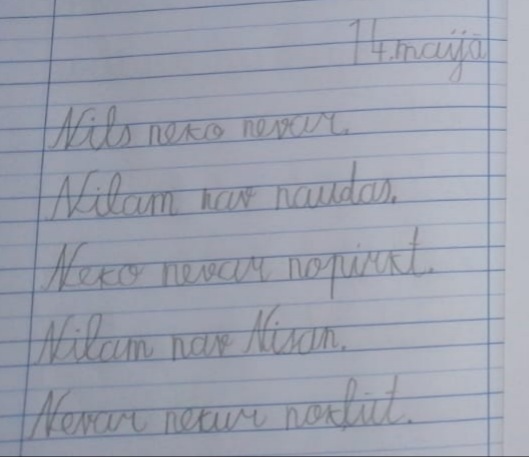 14. maijā
Nils neko nevar.
Nilam nav naudas.
Neko nevar nopirkt.
Nilam nav Nisan.
Nevar nekur nokļūt.